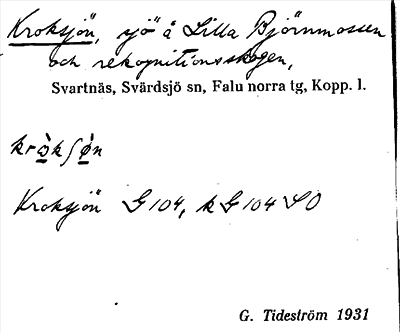 Kroksjön, sjö å Lilla Björnmossen
och rekognitionsskogen,
Svartnäs, Svärdsjö sn, Falu norra tg, Kopp. l.
krɔ̀kʃø̀n
Kroksjön G 104, k G 104 SO
G. Tideström 1931